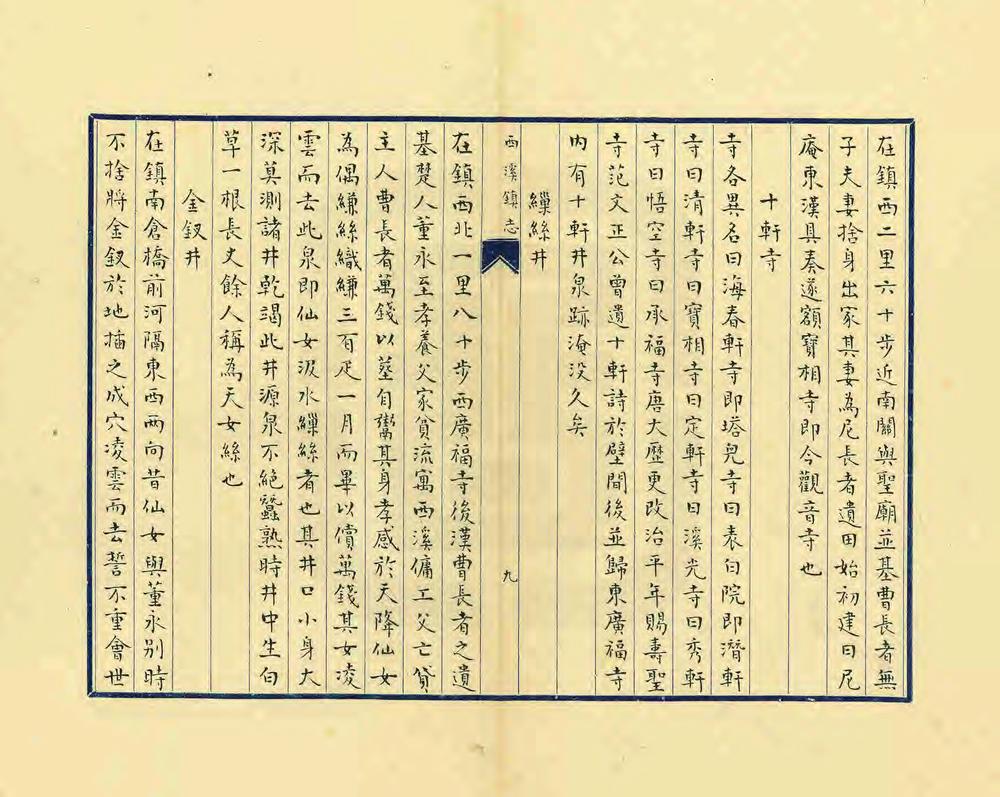 在鎮西二里六十步近南關與聖廟並基曹長者無
子夫妻捨身出家其妻為尼長者遺田始初建曰尼
庵東漢具奏遂額寶相寺即今觀音寺也
十軒寺
寺各異名曰海春軒寺即塔兒寺曰表白院即潛軒
寺曰清軒寺曰寶相寺曰定軒寺曰溪光寺曰秀軒
寺曰悟空寺曰承福寺唐大歷更改治平年賜壽聖
寺范文正公曾遺十軒詩於壁間後並歸東廣福寺
內有十軒井泉跡淹没久矣
繅絲井
西溪鎮志
九
在鎮西北一里八十步西廣福寺後漢曹長者之遺
基楚人董永至孝養父家貧流寓西溪傭工父亡貸
主人曹長者萬錢以塟自鬻其身孝感於天降仙女
為偶縑絲織縑三有疋一月而畢以償萬錢其女凌
雲而去此泉即仙女汲水繅絲者也其井口小身大
深莫測諸井乾謁此井源泉不絕蠶熟時井中生白
草一根長丈餘人稱為天女絲也
金釵井
在鎮南倉橋前河隔東西兩向昔仙女與董永別時
不捨將金釵於地插之成穴凌雲而去誓不重會世